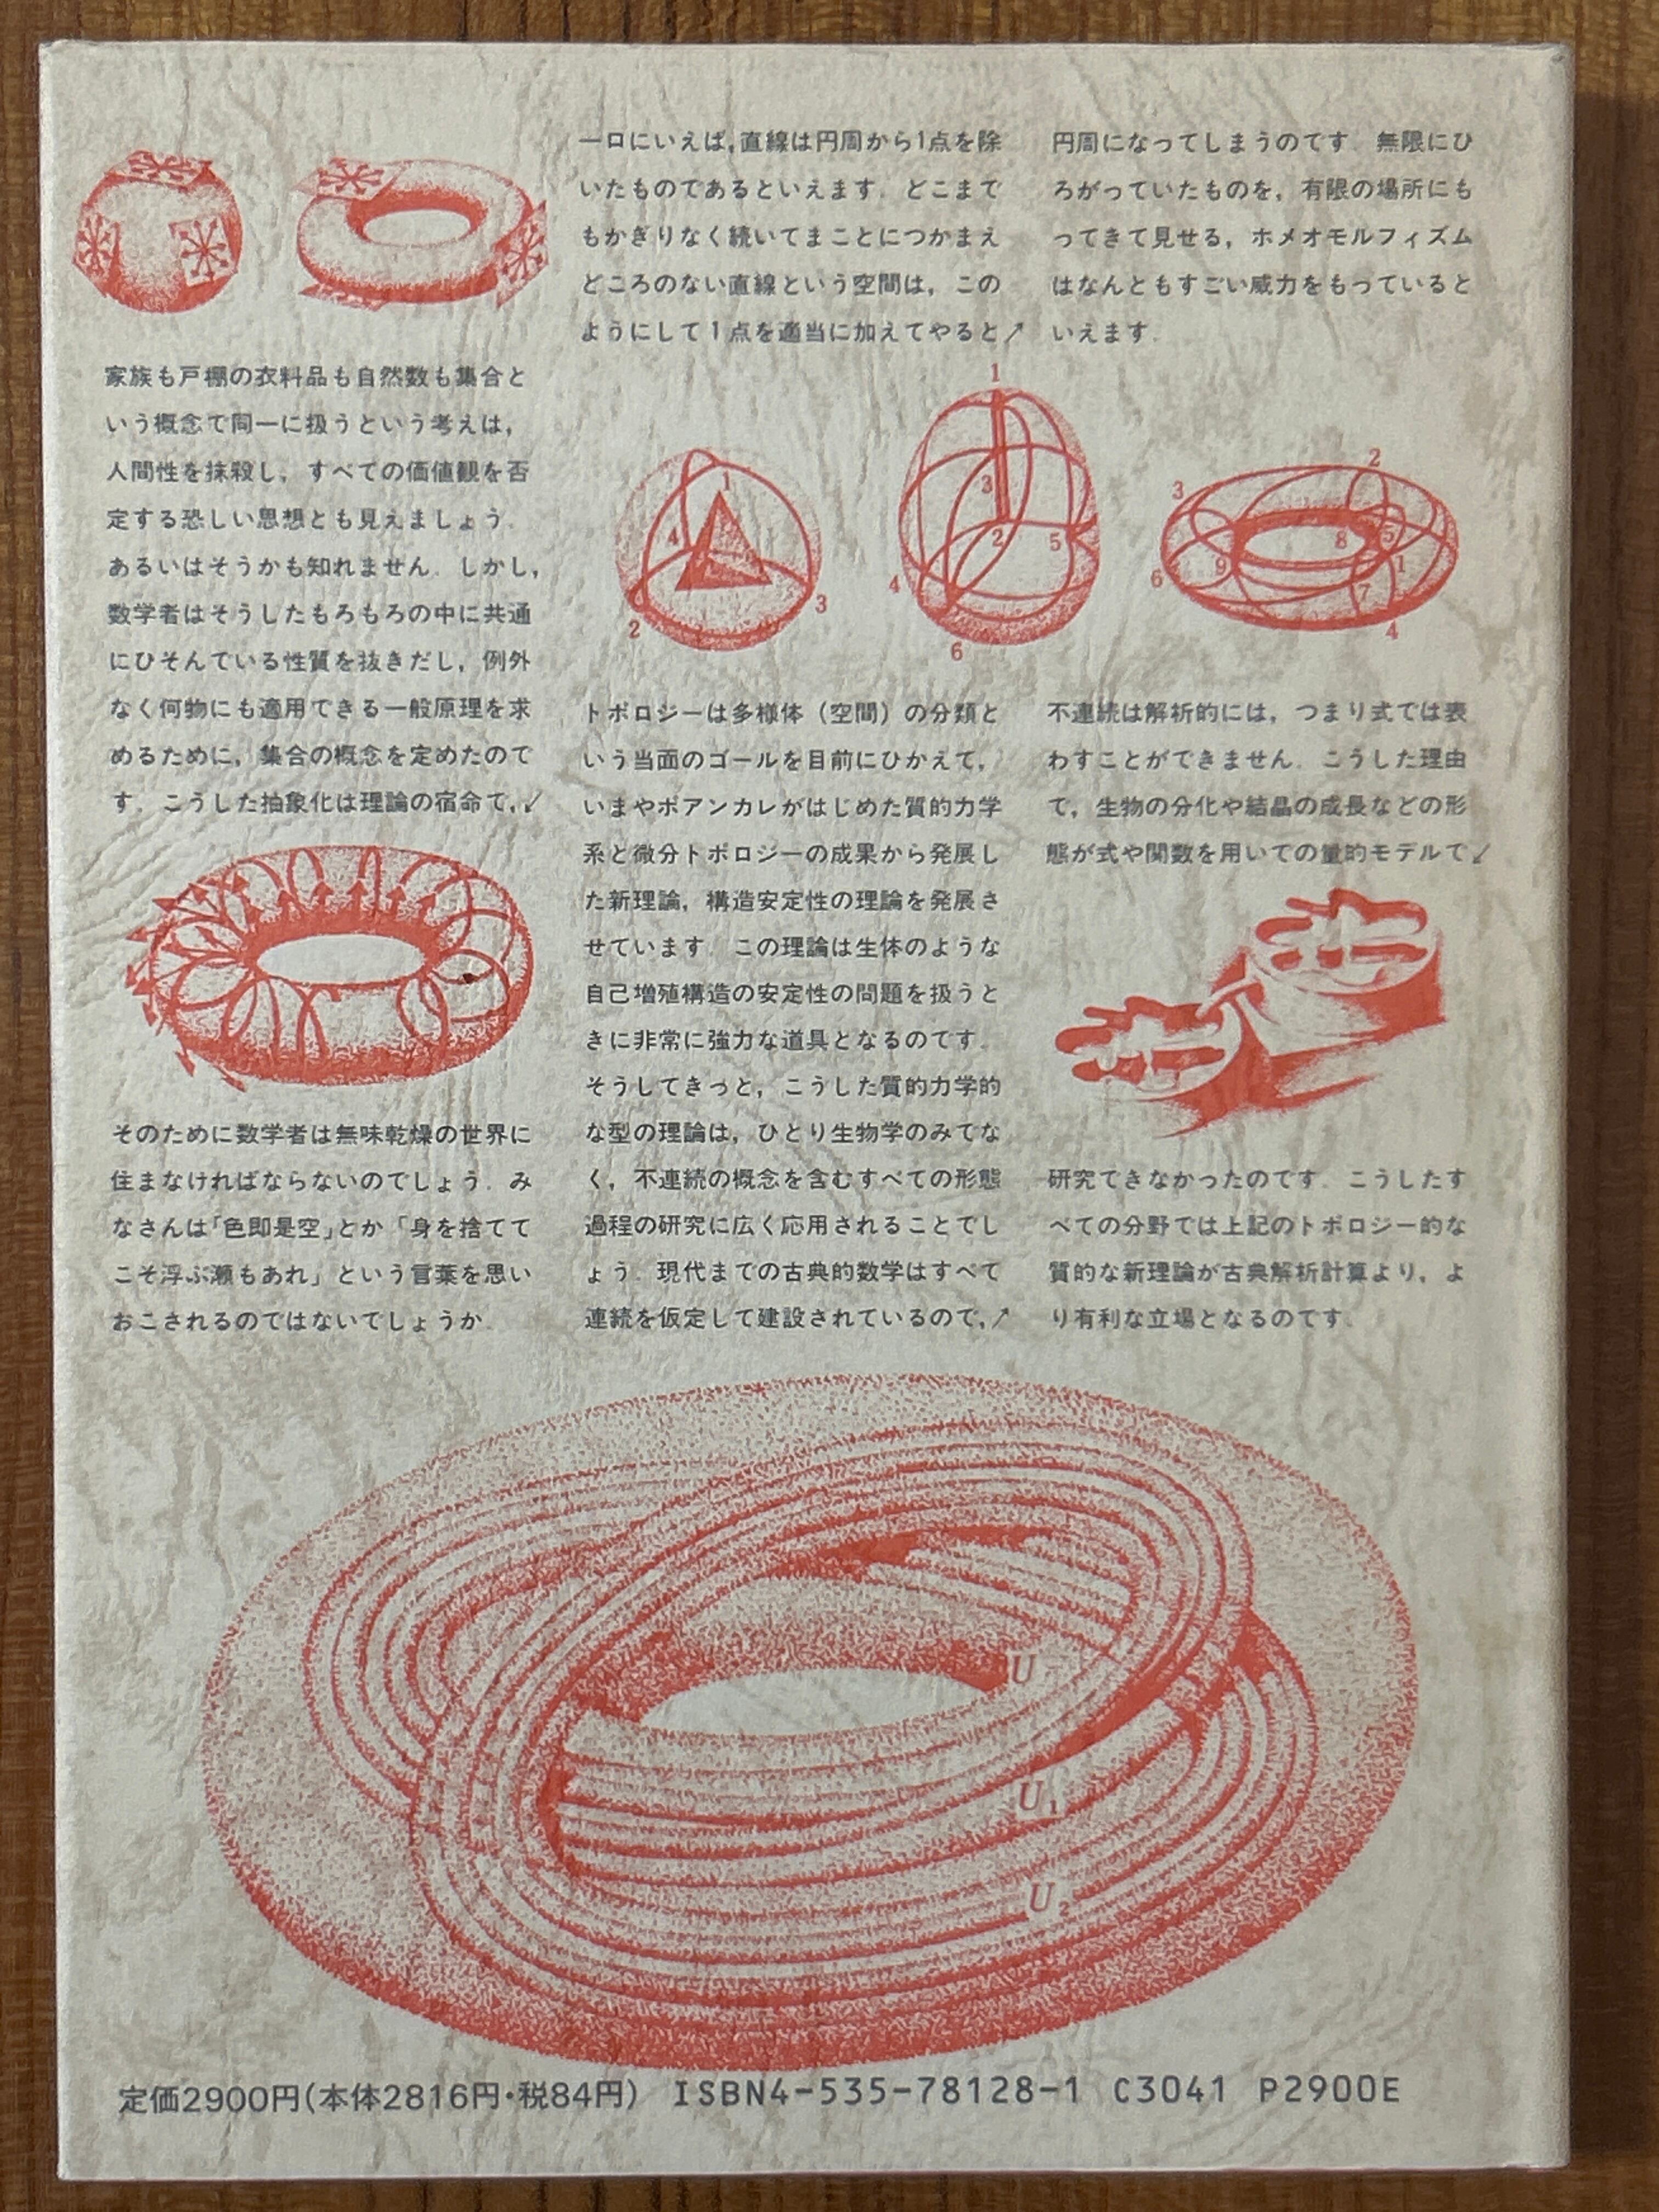 家族も戸棚の衣料品も自然数も集合と
いう概念で同一に扱うという考えは，
人間性を抹殺し，すべての価値観を否
定する恐しい思想とも見えましょう．
あるいはそうかも知れません．しかし，
数学者はそうしたもろもろの中に共通
にひそんでいる性質を抜きだし，例外
なく何物にも適用できる一般原理を求
めるために，集合の概念を定めたので
す．こうした抽象化は理論の宿命で，↙
そのために数学者は無味乾燥の世界に
住まなければならないのでしょう．み
なさんは「色即是空」とか「身を捨てて
こそ浮ぶ瀬もあれ」という言葉を思い
おこされるのではないでしょうか．
一口にいえば，直線は円周から1点を除
いたものであるといえます．どこまで
もかぎりなく続いてまことにつかまえ
どころのない直線という空間は，この
ようにして1点を適当に加えてやると↗
円周になってしまうのです．無限にひ
ろがっていたものを，有限の場所にも
ってきて見せる，ホメオモルフィズム
はなんともすごい威力をもっていると
いえます．
1
4
2
3
1
3
2
5
4
6
2
3
8
5
6
9
1
7
4
トポロジーは多様体（空間）の分類と
いう当面のゴールを目前にひかえて，
いまやポアンカレがはじめた質的力学
系と微分トポロジーの成果から発展し
た新理論，構造安定性の理論を発展さ
せています．この理論は生体のような
自己増殖構造の安定性の問題を扱うと
きに非常に強力な道具となるのです．
そうしてきっと，こうした質的力学的
な型の理論は，ひとり生物学のみでな
く，不連続の概念を含むすべての形態
過程の研究に広く応用されることでし
ょう．現代までの古典的数学はすべて
連続を仮定して建設されているので，↗
不連続は解析的には，つまり式では表
わすことができません．こうした理由
で，生物の分化や結晶の成長などの形
態が式や関数を用いての量的モデルで↙
研究できなかったのです．こうしたす
べての分野では上記のトポロジー的な
質的な新理論が古典解析計算より，よ
り有利な立場となるのです．
U
U₁
U₂
定価2900円(本体2816円・税84円) ISBN4-535-78128-1 C3041 P2900E